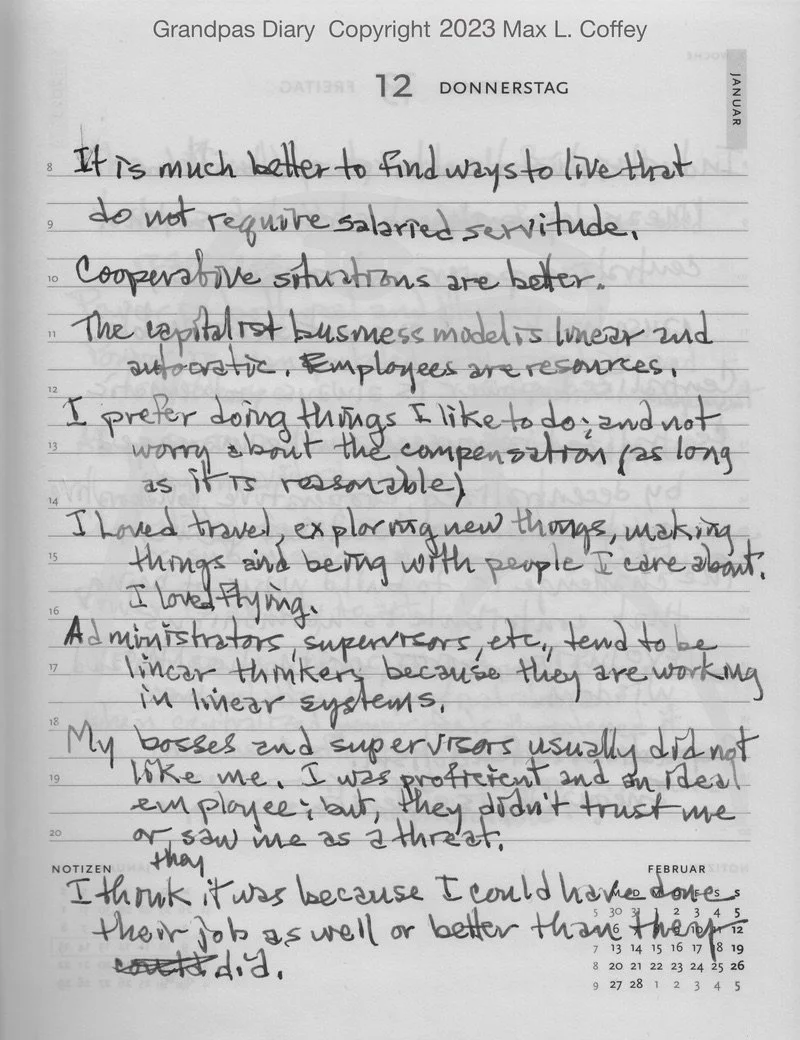 Grandpas Diary Copyright 2023 Max L. Coffey
12 DONNERSTAG
JANUAR
8 It is much better to find ways to live that
9 do not require salaried servitude.
10 Cooperative situations are better.
11 The capitalist business model is linear and
autocratic. Employees are resources.
12
I prefer doing things I like to do; and not
13 worry about the compensation (as long
as it is reasonable)
14
I Loved travel, exploring new things, making
15 things and being with people I care about.
I loved flying.
16
Administrators, supervisors, etc., tend to be
17 linear thinkers because they are working
in linear systems.
18
My bosses and supervisors usually did not
19 like me. I was proficient and an ideal
employee; but, they didn't trust me
20 or saw me as a threat.
they
NOTIZEN FEBRUAR
I think it was because I could have done
their job as well or better than they
could did.
S S
5 30 31 2 3 4 5
6 12
7 13 14 15 16 17 18 19
8 20 21 22 23 24 25 26
9 27 28 1 2 3 4 5